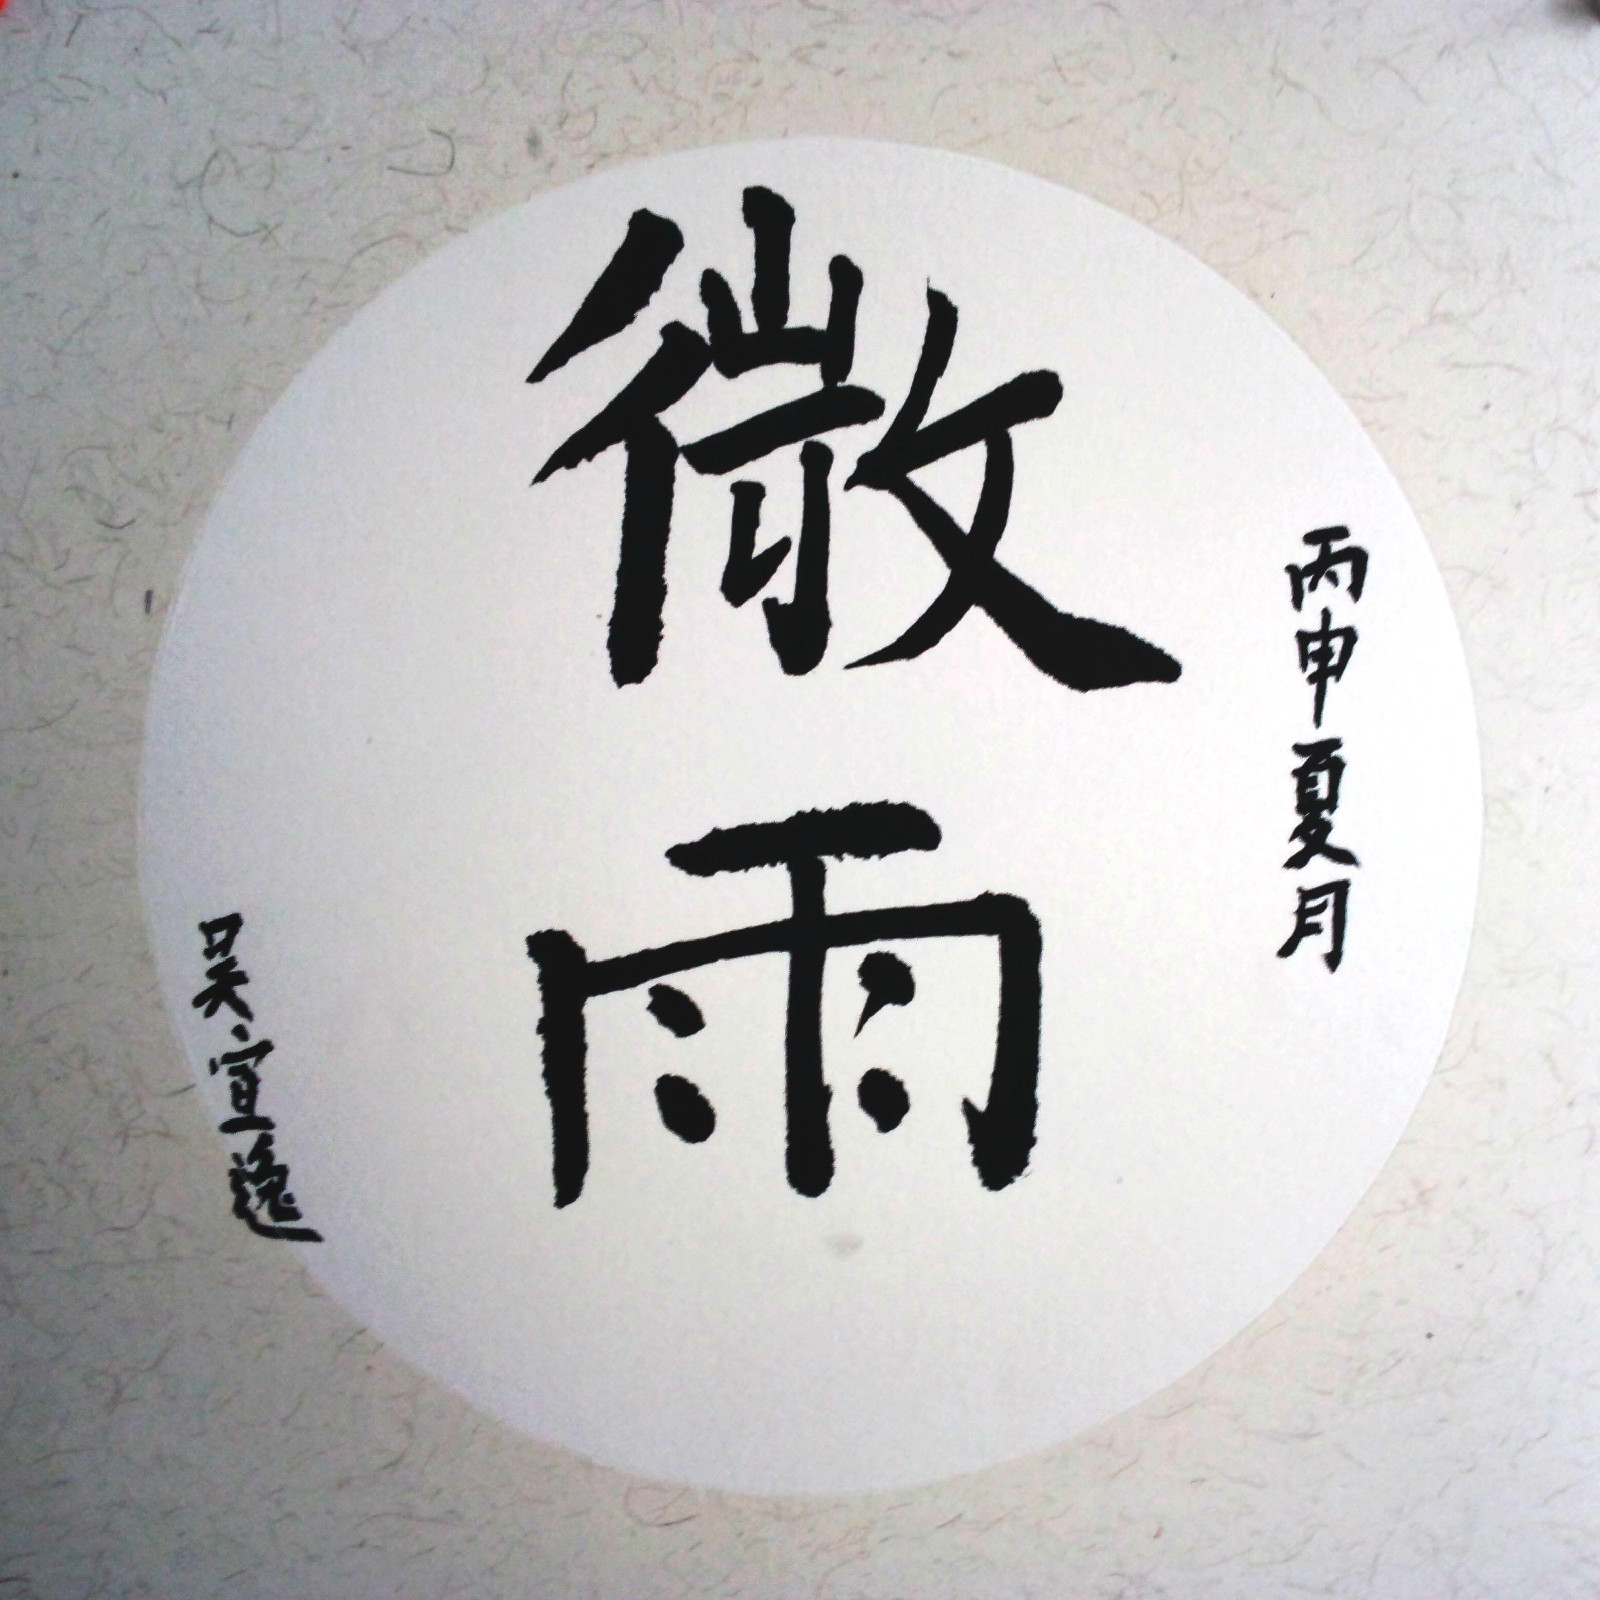 丙申夏月
微雨
吴宣逸